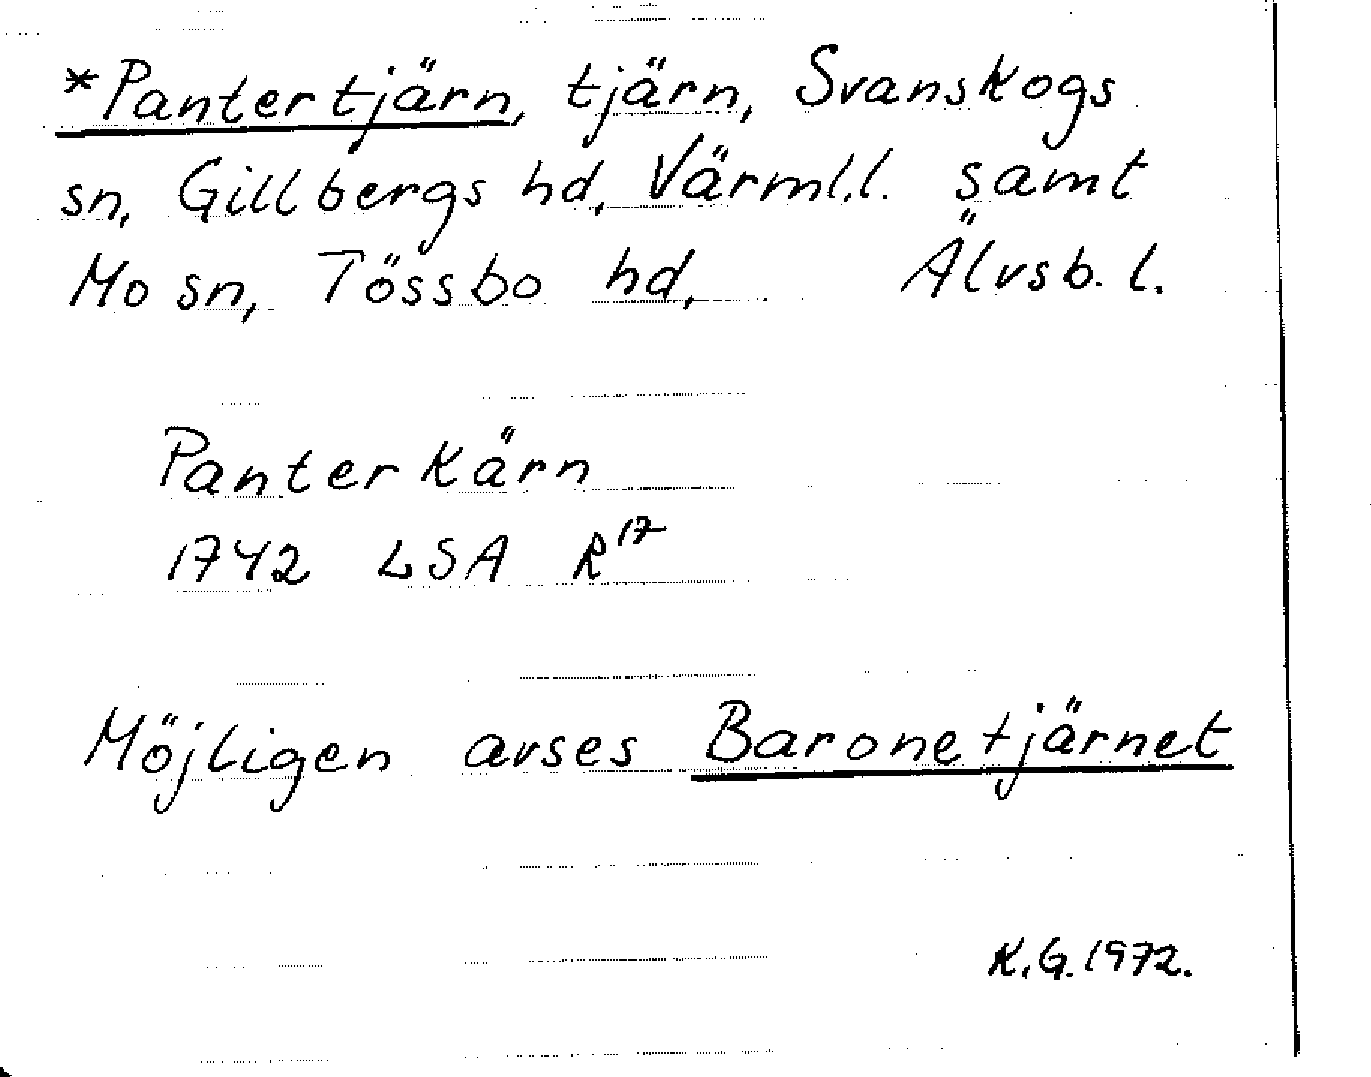 *Pantertjärn, tjärn, Svanskogs
sn, Gillbergs hd, Värml.l. samt
Mo sn, Tössbo hd, Älvsb. l.
Panter Kärn
1742 LSA R17
Möjligen avses Baronetjärnet
K.G. 1972.